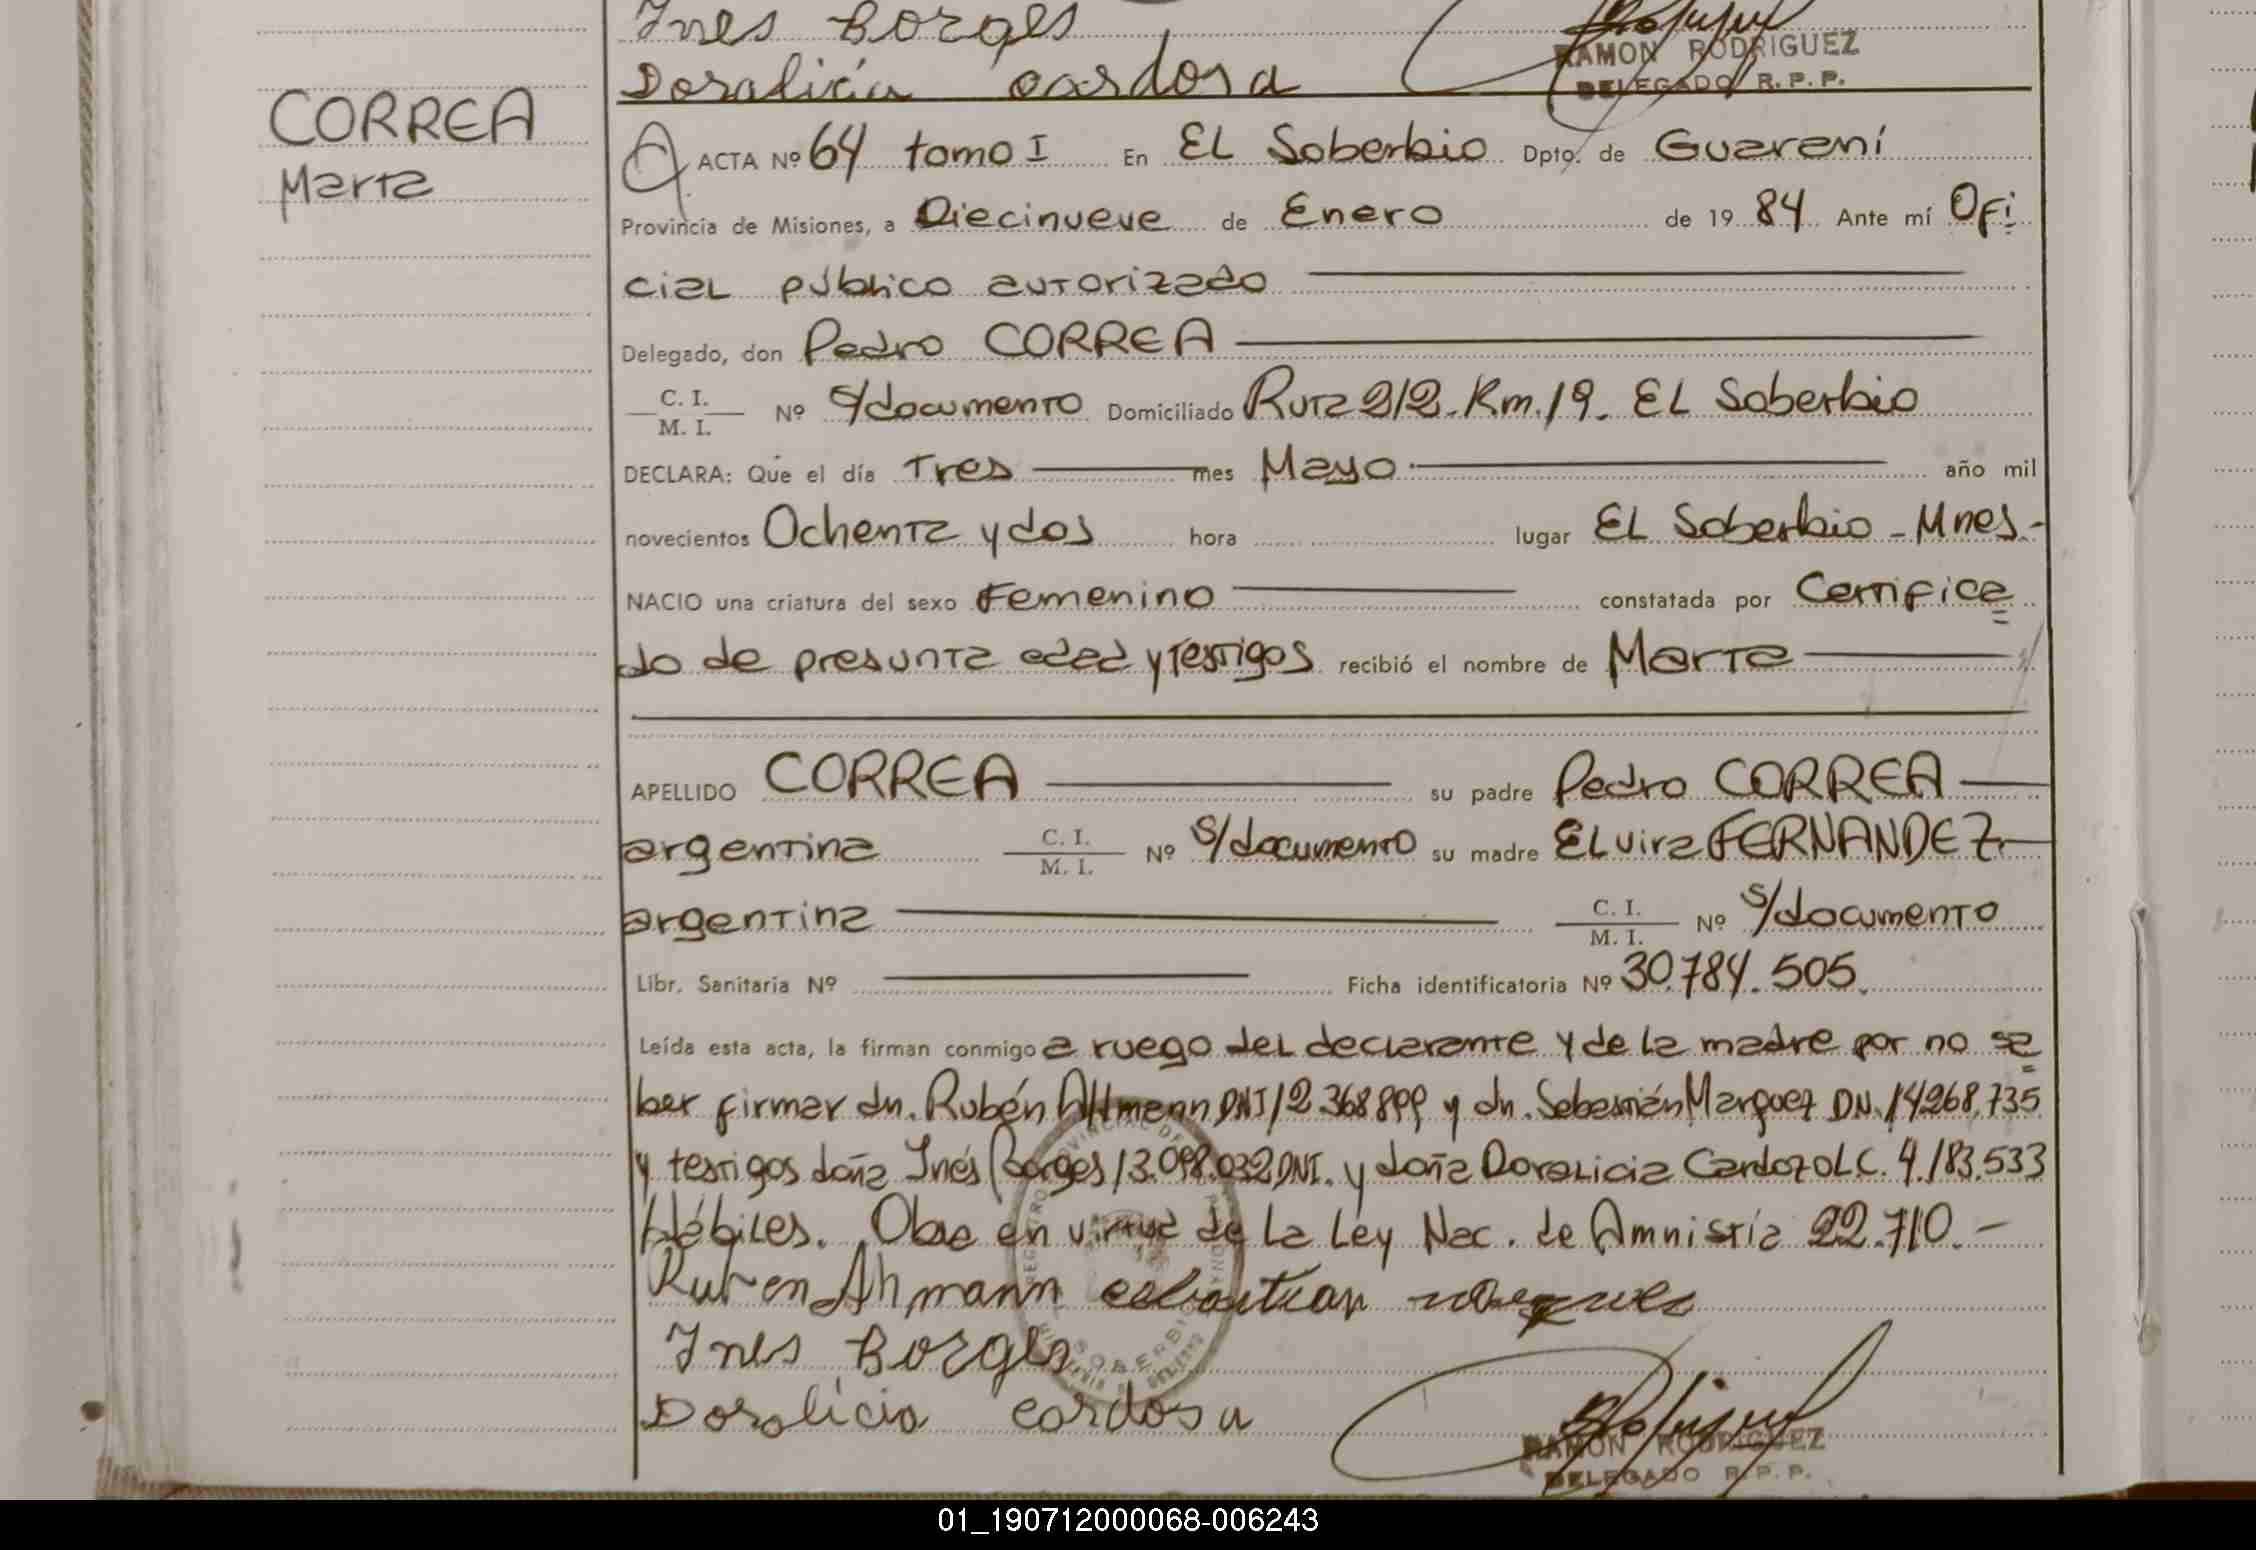 Ines Borges
Doralicia cardosa
RAMON RODRIGUEZ
DELEGADO R. P. P.
CORREA
Marta
ACTA Nº 64 tomo I En EL Soberbio Dpto. de Guaraní
Provincia de Misiones, a Diecinueve de Enero de 19 84 Ante mí Ofi
cial público autorizado
Delegado, don Pedro CORREA
C. I.
M. I. Nº s/documento Domiciliado Ruta 212. Km. 19. EL Soberbio
DECLARA: Que el día Tres mes Mayo año mil
novecientos Ochenta y dos hora lugar EL Soberbio - Mnes.-
NACIO una criatura del sexo Femenino constatada por Certifica
do de presunta edad y testigos recibió el nombre de Marta
APELLIDO CORREA su padre Pedro CORREA
argentina C. I. M. I. Nº s/documento su madre ELvira FERNANDEZ
argentina C. I. M. I. Nº s/documento
Libr. Sanitaria Nº Ficha identificatoria Nº 30.784.505.
Leída esta acta, la firman conmigo a ruego del declarante y de la madre por no sa
ber firmar dn. Rubén Ahmann DNI 12.368.899 y dn. Sebastián Marquez DN. 14.268.735
y testigos doña Inés Borges 13.098.032 DNI. y doña Doralicia Cardozo L.C. 4.183.533
Hábiles. Obra en virtud de La Ley Nac. de Amnistía 22.710.-
Ruben Ahmann esebastian marques
Ines Borges
Doralicia cardosa
RAMON RODRIGUEZ
DELEGADO R. P. P.
01_190712000068-006243